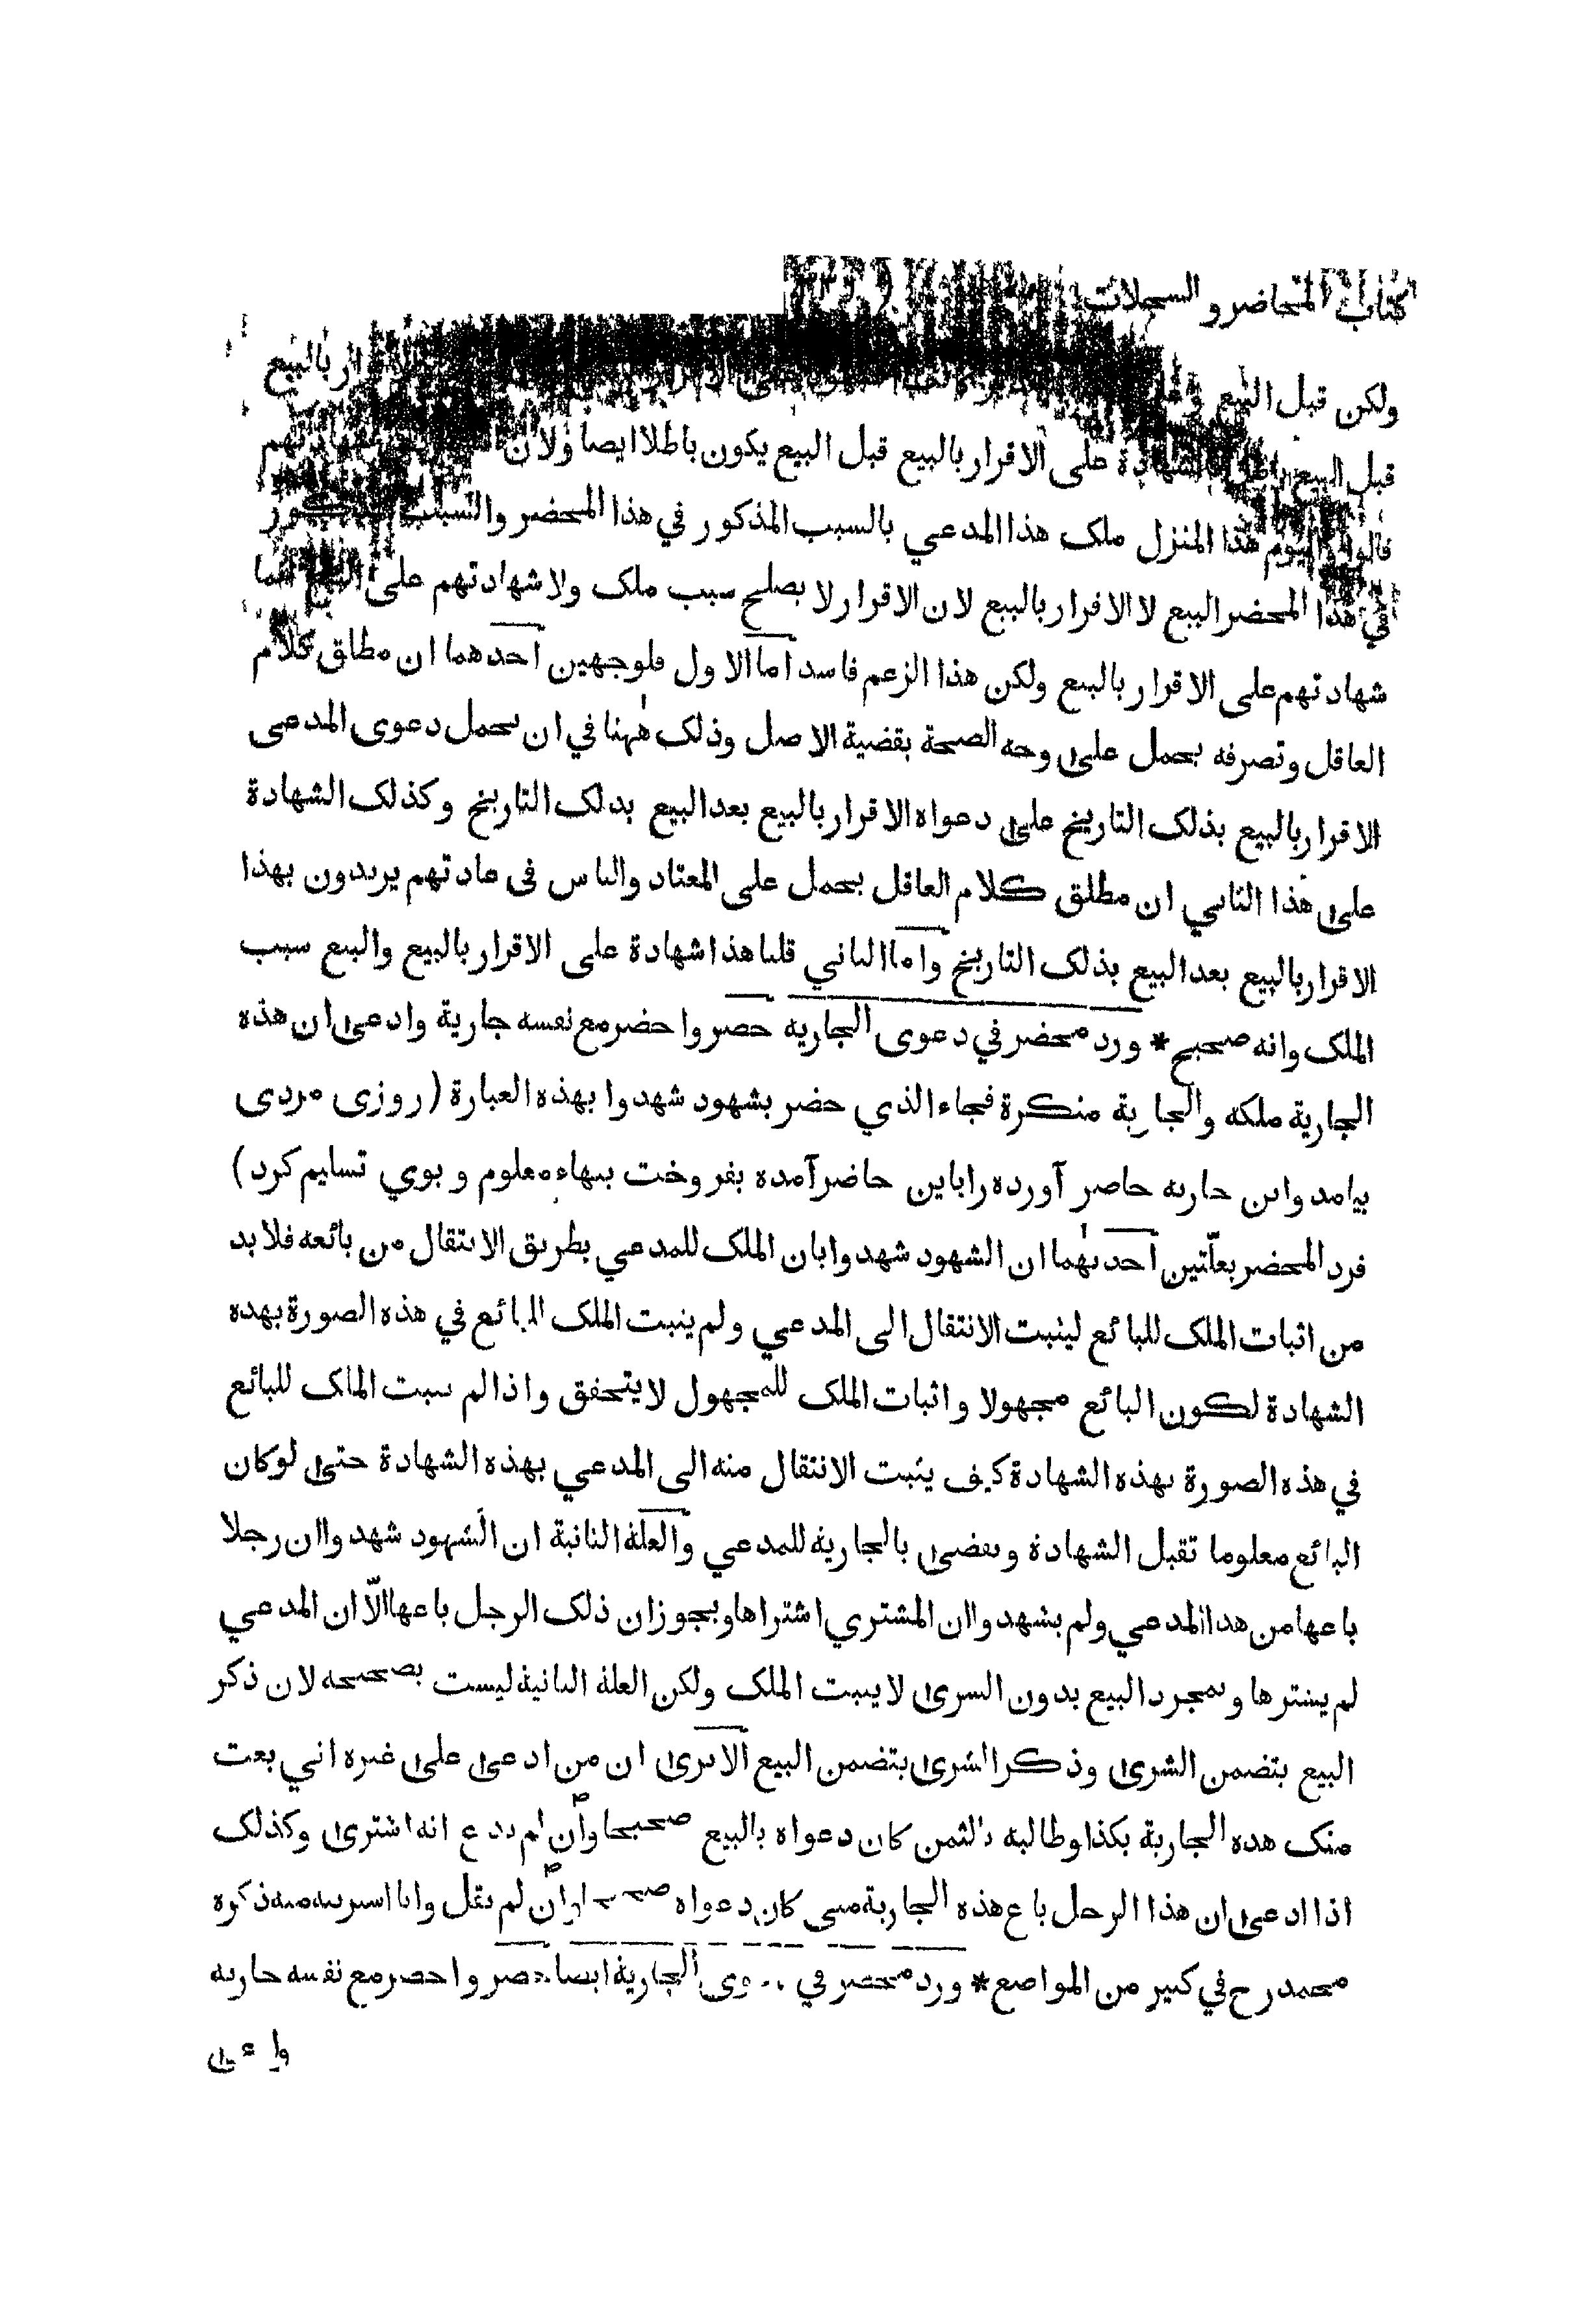 كتاب المحاضر و السجلات
ولكن قبل البيع بالبيع
قبل البيع الشهادة على الاقرار بالبيع قبل البيع يكون باطلا ايضا ولان
قالوا اليوم هذا المنزل ملك هذا المدعي بالسبب المذكور في هذا المحضر والسبب المذكور
في هذا المحضر البيع لا الاقرار بالبيع لان الاقرار لا يصلح سبب ملك ولا شهادتهم على البيع انما
شهادتهم على الاقرار بالبيع ولكن هذا الزعم فاسد اما الاول فلوجهين احدهما ان مطلق كلام
العاقل وتصرفه يحمل على وجه الصحة بقضية الاصل وذلك ههنا في ان يحمل دعوى المدعى
الاقرار بالبيع بذلك التاريخ على دعواه الاقرار بالبيع بعد البيع بذلك التاريخ وكذلك الشهادة
على هذا الثاني ان مطلق كلام العاقل يحمل على المعتاد والناس في عادتهم يريدون بهذا
الاقرار بالبيع بعد البيع بذلك التاريخ واما الثاني قلنا هذا شهادة على الاقرار بالبيع والبيع سبب
الملك وانه صحيح * ورد محضر في دعوى الجارية حضر واحضر مع نفسه جارية وادعى ان هذه
الجارية ملكه والجارية منكرة فجاء الذي حضر بشهود شهدوا بهذه العبارة (روزى مردى
بيامد واين جاريه حاضر آورده راباين حاضر آمده بفروخت ببهاء معلوم و بوي تسليم كرد)
فرد المحضر بعلّتين احدىهما ان الشهود شهدوا بان الملك للمدعي بطريق الانتقال من بائعه فلا بد
من اثبات الملك للبائع ليثبت الانتقال الى المدعي ولم يثبت الملك للبائع في هذه الصورة بهذه
الشهادة لكون البائع مجهولا واثبات الملك للمجهول لا يتحقق واذا لم يثبت الملك للبائع
في هذه الصورة بهذه الشهادة كيف يثبت الانتقال منه الى المدعي بهذه الشهادة حتى لو كان
البائع معلوما تقبل الشهادة ويقضى بالجارية للمدعي والعلة الثانية ان الشهود شهدوا ان رجلا
باعها من هذا المدعي ولم يشهدوا ان المشتري اشتراها ويجوز ان ذلك الرجل باعها الّا ان المدعي
لم يشترها وبمجرد البيع بدون الشرى لا يثبت الملك ولكن العلة الثانية ليست بصحيحة لان ذكر
البيع يتضمن الشرى وذكر الشرى يتضمن البيع الا يرى ان من ادعى على غيره اني بعت
منك هذه الجارية بكذا وطالبه بالثمن كان دعواه بالبيع صحيحا وان لم يدع انه اشترى وكذلك
اذا ادعى ان هذا الرجل باع هذه الجارية مني كان دعواه صحيحا وان لم يقل وانا اشتريته منه ذكره
محمد رح في كثير من المواضع * ورد محضر في دعوى الجارية ايضا حضر واحضر مع نفسه جارية
وادعى